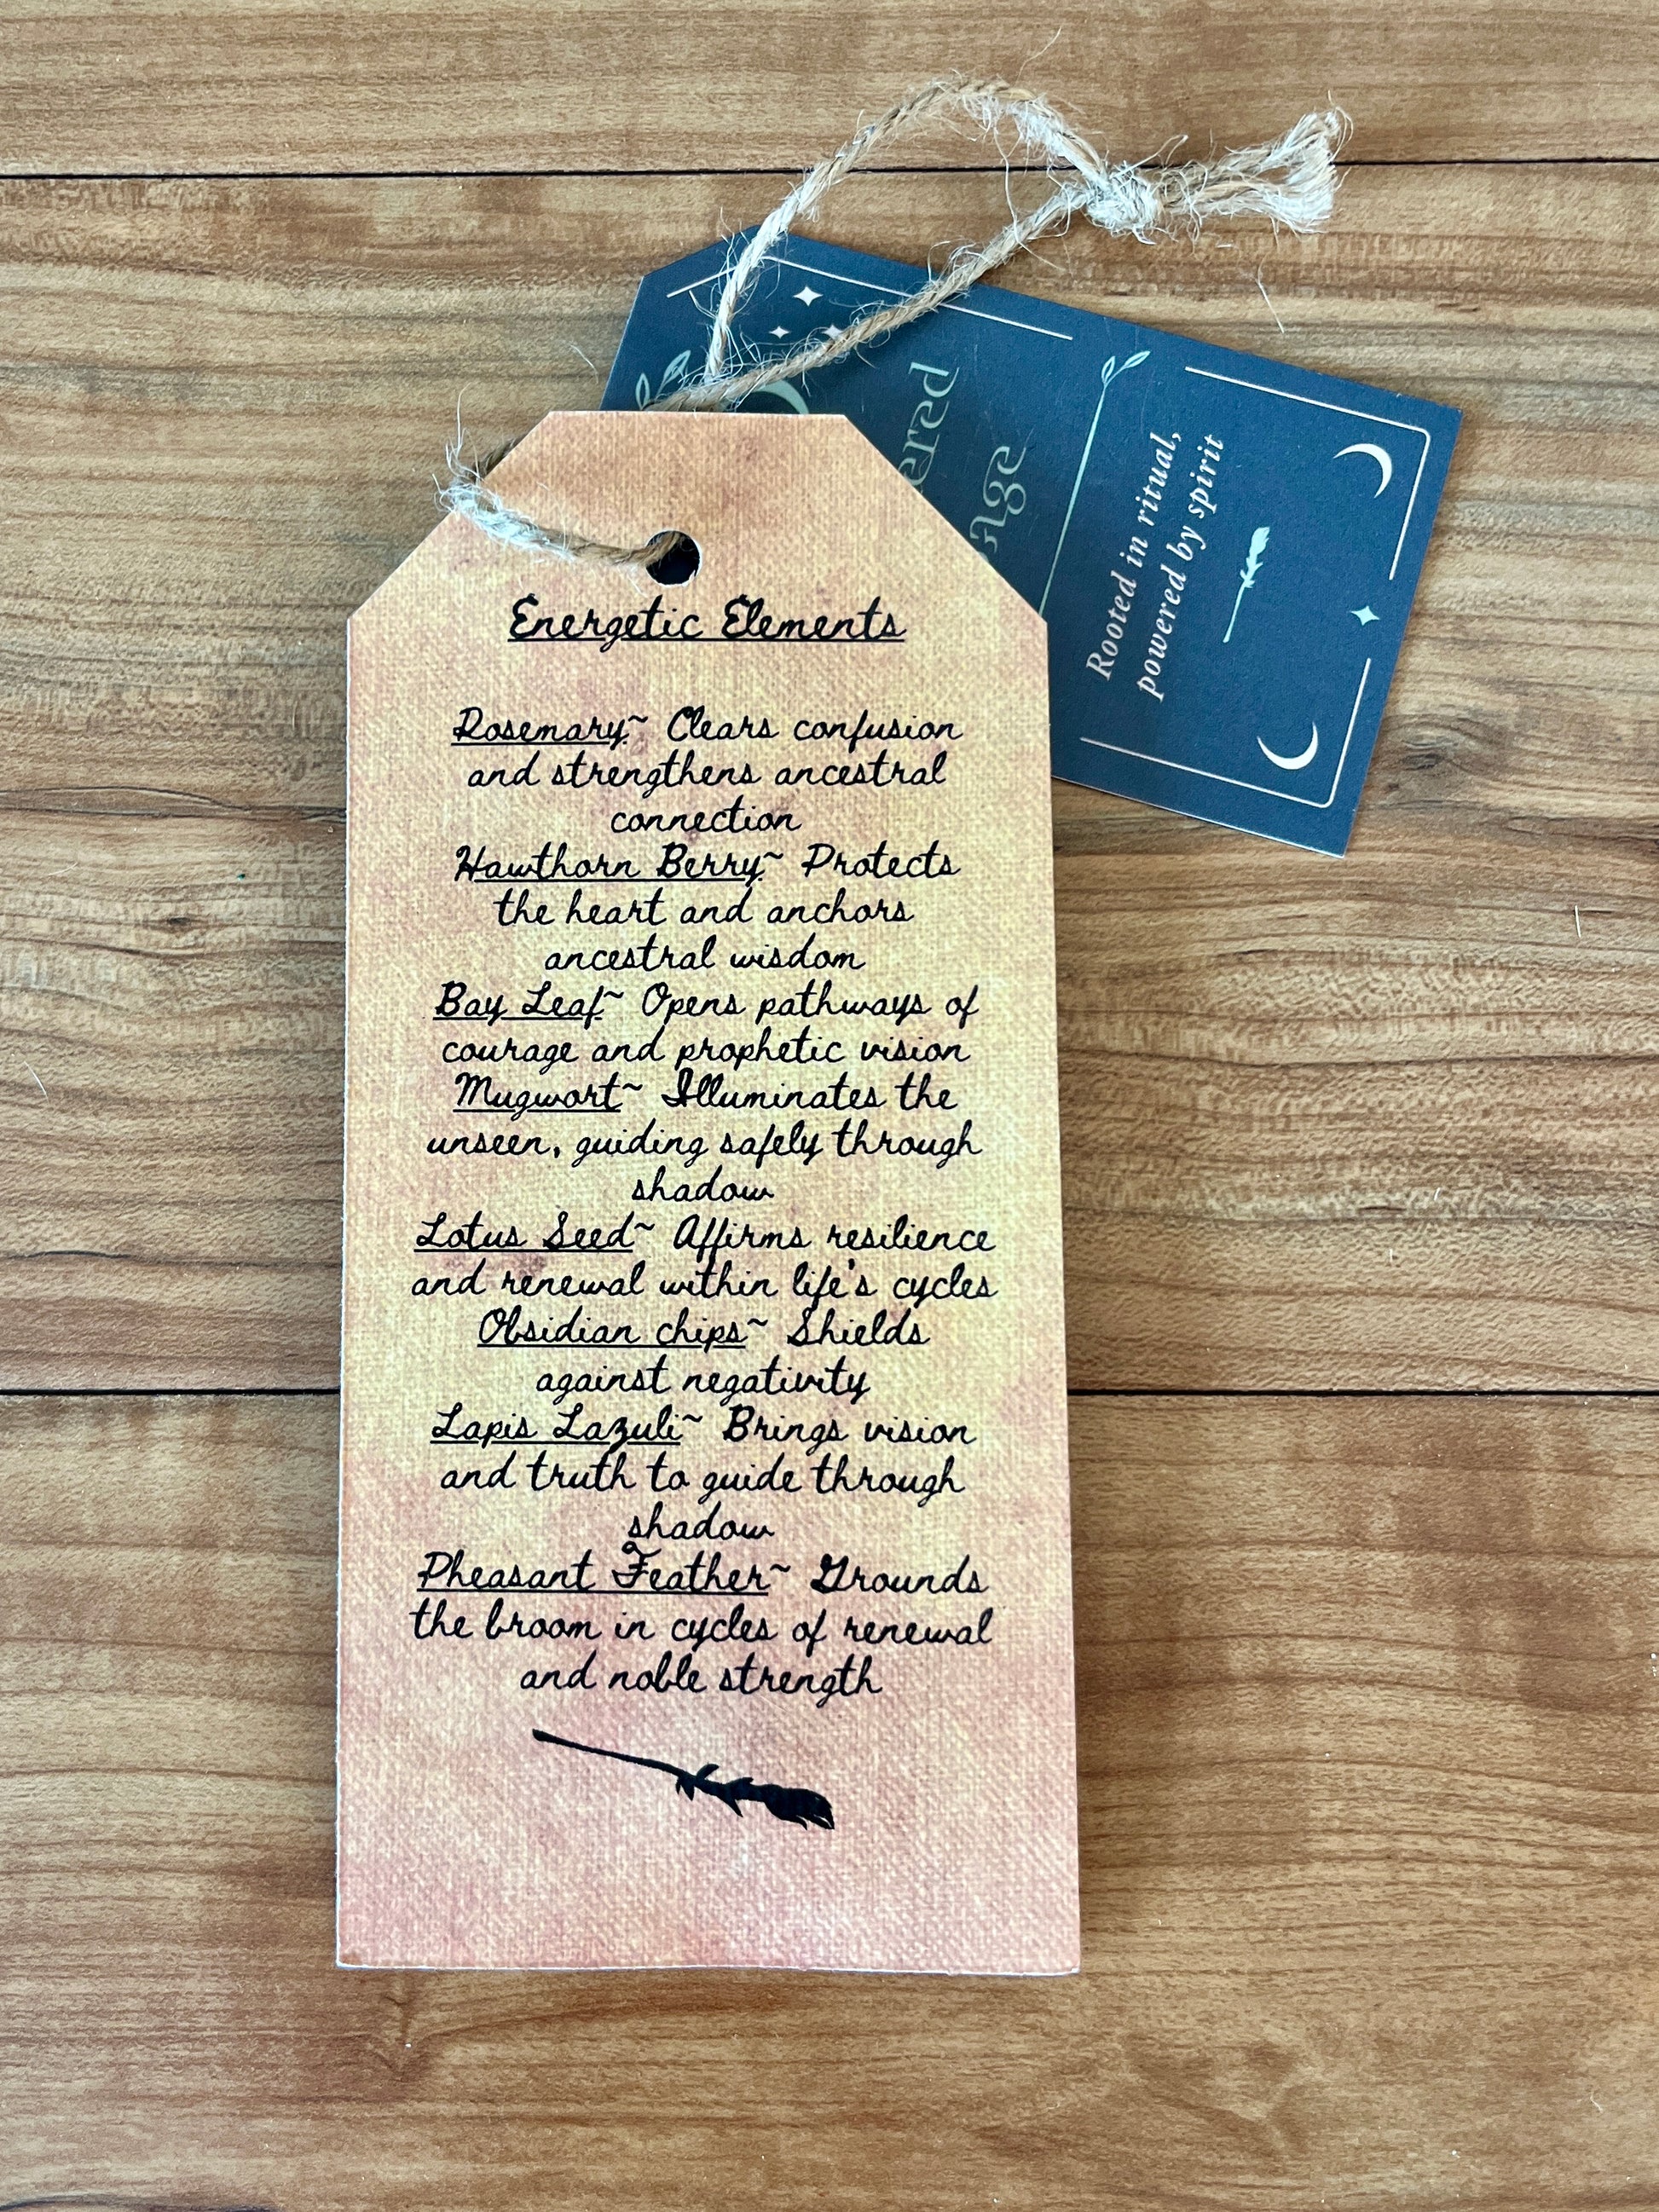 Energetic Elements
Rosemary~ Clears confusion
and strengthens ancestral
connection
Hawthorn Berry~ Protects
the heart and anchors
ancestral wisdom
Bay Leaf~ Opens pathways of
courage and prophetic vision
Mugwort~ Illuminates the
unseen, guiding safely through
shadow
Lotus Seed~ Affirms resilience
and renewal within life's cycles
Obsidian chips~ Shields
against negativity
Lapis Lazuli~ Brings vision
and truth to guide through
shadow
Pheasant Feather~ Grounds
the broom in cycles of renewal
and noble strength
Rooted in ritual,
powered by spirit